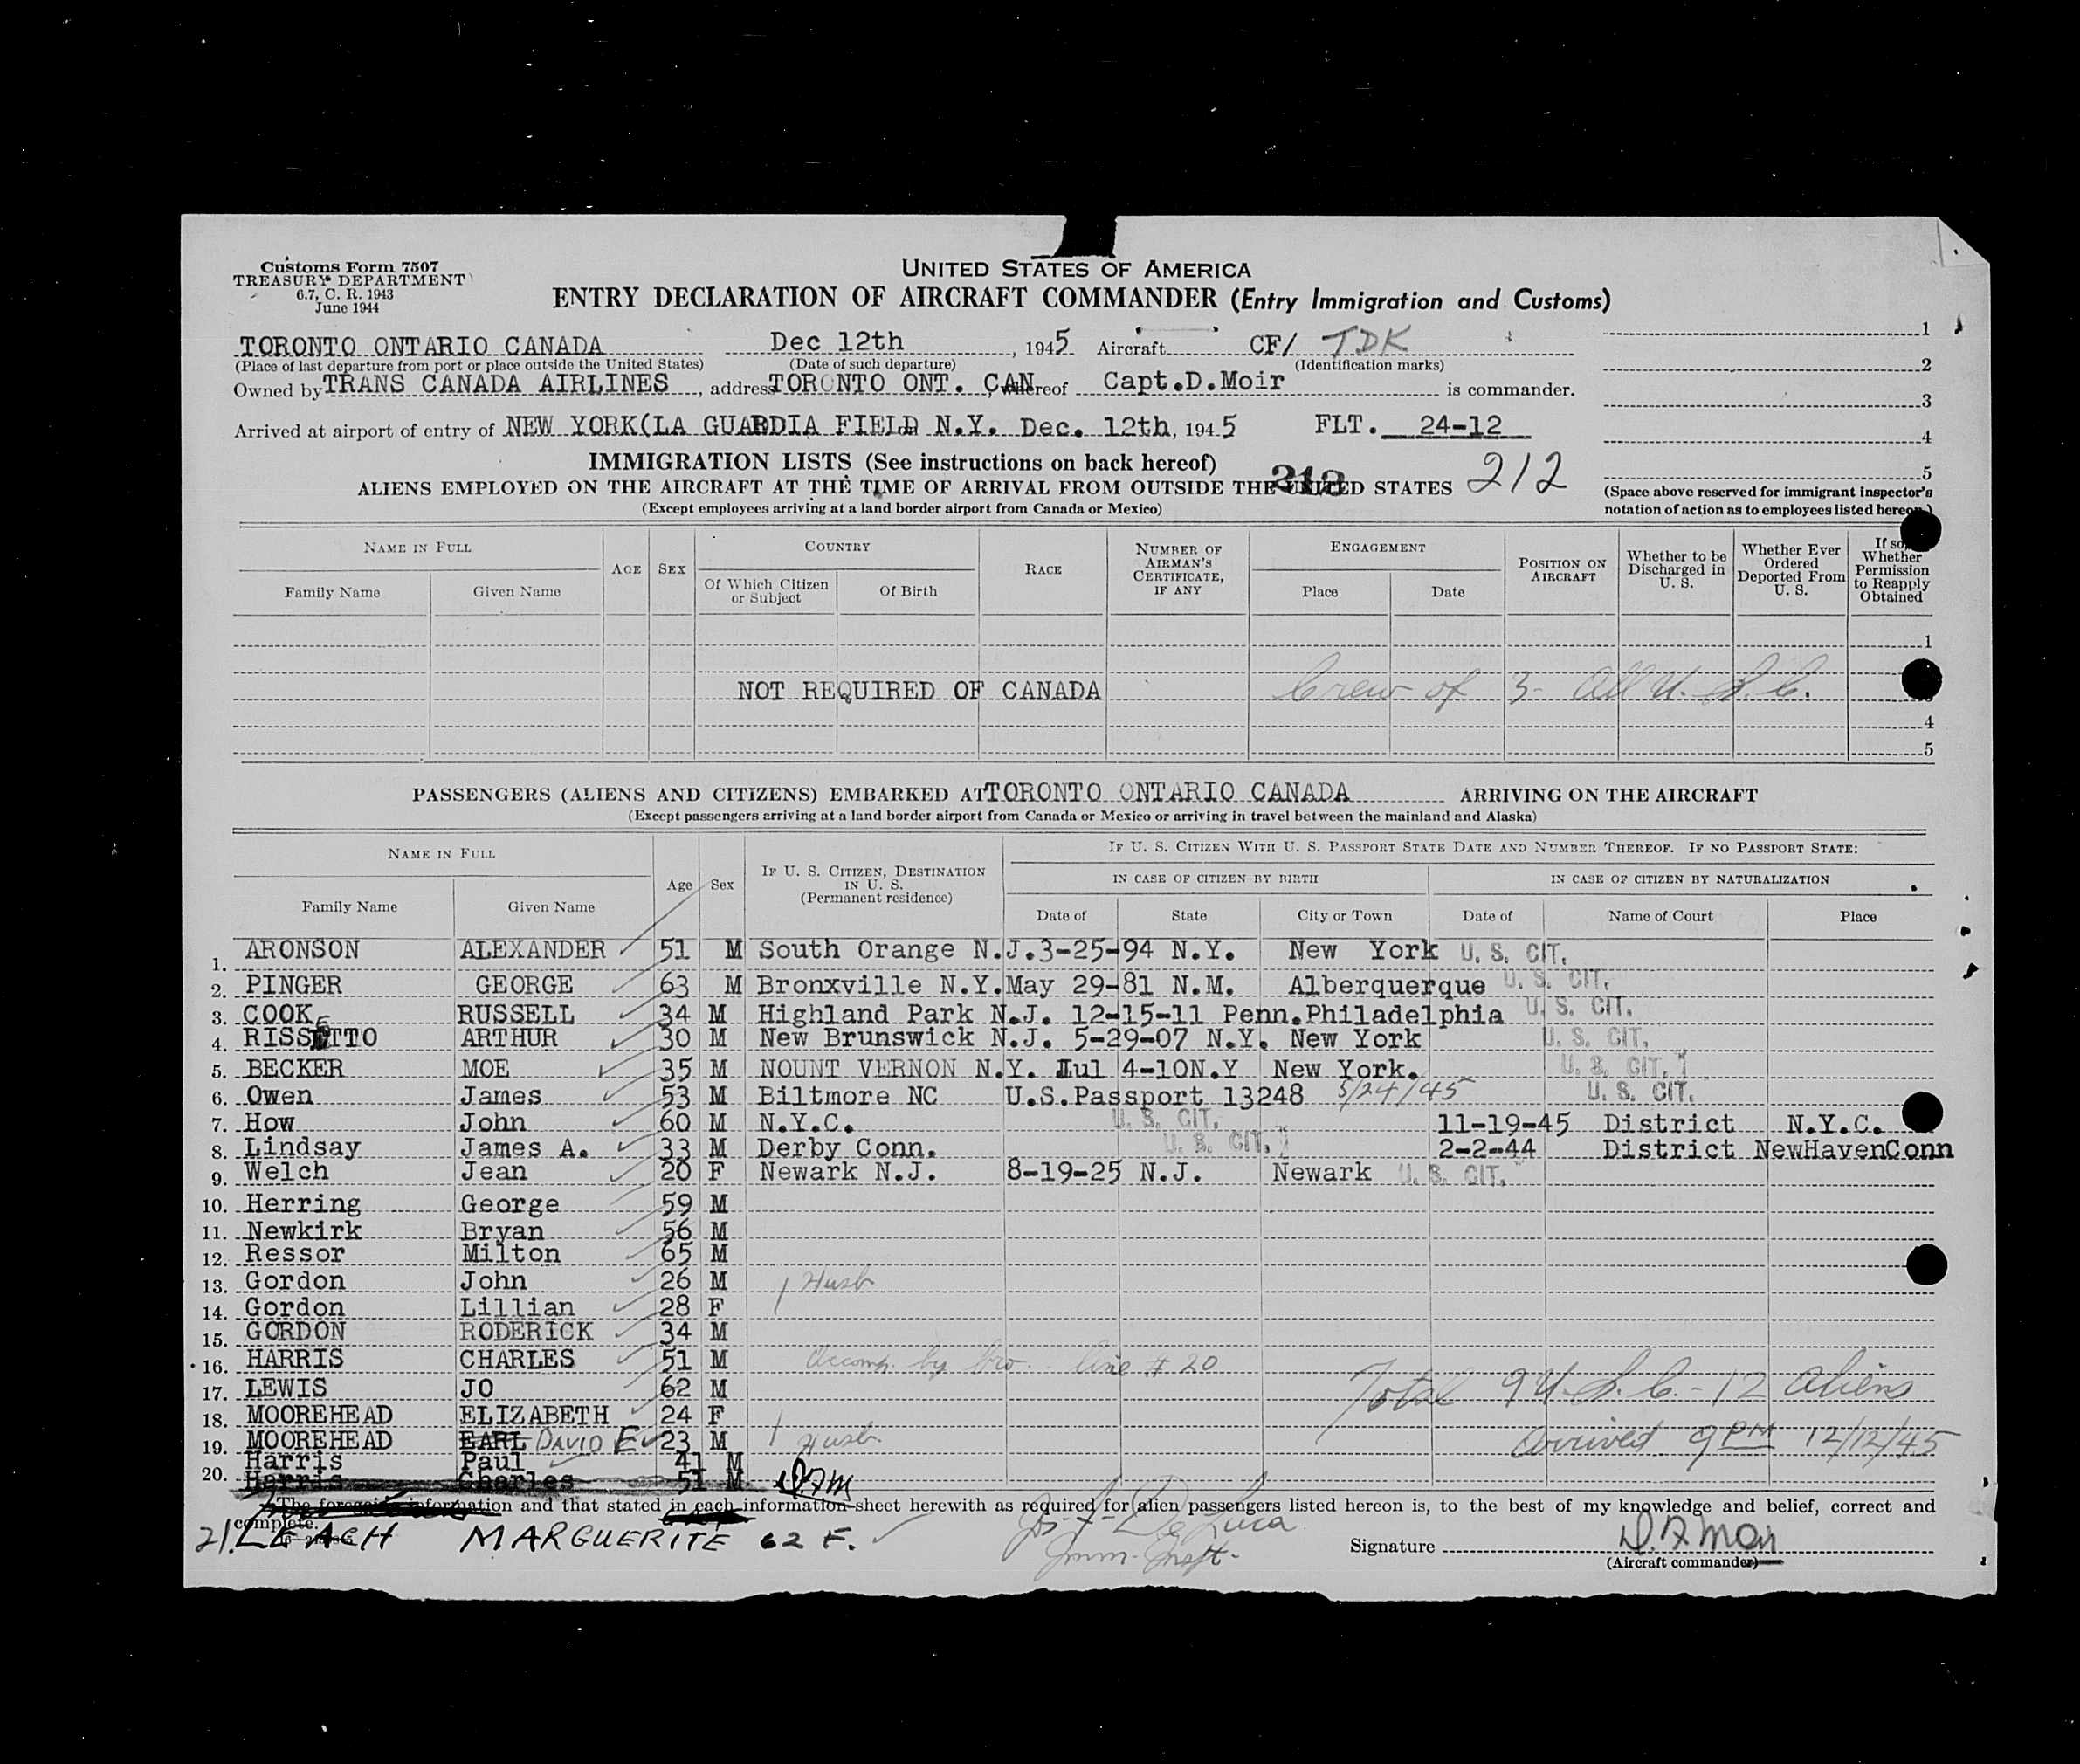 Customs Form 7507
TREASURY DEPARTMENT
6.7, C. R. 1943
June 1944
UNITED STATES OF AMERICA
ENTRY DECLARATION OF AIRCRAFT COMMANDER (Entry Immigration and Customs)
TORONTO ONTARIO CANADA Dec 12th, 1945 Aircraft CF/ TDK
(Place of last departure from port or place outside the United States) (Date of such departure) (Identification marks)
Owned by TRANS CANADA AIRLINES, address TORONTO ONT. CAN, whereof Capt.D.Moir is commander.
Arrived at airport of entry of NEW YORK(LA GUARDIA FIELD N.Y. Dec. 12th, 1945 FLT. 24-12
1
2
3
4
5
IMMIGRATION LISTS (See instructions on back hereof)
ALIENS EMPLOYED ON THE AIRCRAFT AT THE TIME OF ARRIVAL FROM OUTSIDE THE UNITED STATES 212
(Except employees arriving at a land border airport from Canada or Mexico)
(Space above reserved for immigrant inspector's
notation of action as to employees listed hereon.)
NAME IN FULL AGE SEX COUNTRY RACE NUMBER OF AIRMAN'S CERTIFICATE, IF ANY ENGAGEMENT POSITION ON AIRCRAFT Whether to be Discharged in U. S. Whether Ever Ordered Deported From U. S. If so, Whether Permission to Reapply Obtained
Family Name Given Name Of Which Citizen or Subject Of Birth Place Date
1
NOT REQUIRED OF CANADA Crew of 3- All U. S. C.
4
5
PASSENGERS (ALIENS AND CITIZENS) EMBARKED AT TORONTO ONTARIO CANADA ARRIVING ON THE AIRCRAFT
(Except passengers arriving at a land border airport from Canada or Mexico or arriving in travel between the mainland and Alaska)
NAME IN FULL Age Sex IF U. S. CITIZEN, DESTINATION IN U. S. (Permanent residence) IF U. S. CITIZEN WITH U. S. PASSPORT STATE DATE AND NUMBER THEREOF. IF NO PASSPORT STATE:
IN CASE OF CITIZEN BY BIRTH IN CASE OF CITIZEN BY NATURALIZATION
Family Name Given Name Date of State City or Town Date of Name of Court Place
1. ARONSON ALEXANDER 51 M South Orange N.J. 3-25-94 N.Y. New York U. S. CIT.
2. PINGER GEORGE 63 M Bronxville N.Y. May 29-81 N.M. Alberquerque U. S. CIT.
3. COOK RUSSELL 34 M Highland Park N.J. 12-15-11 Penn. Philadelphia U. S. CIT.
4. RISSETTO ARTHUR 30 M New Brunswick N.J. 5-29-07 N.Y. New York U. S. CIT.
5. BECKER MOE 35 M NOUNT VERNON N.Y. Jul 4-10 N.Y New York. U. S. CIT.
6. Owen James 53 M Biltmore NC U.S.Passport 13248 5/24/45 U. S. CIT.
7. How John 60 M N.Y.C. U. S. CIT. 11-19-45 District N.Y.C.
8. Lindsay James A. 33 M Derby Conn. U. S. CIT. 2-2-44 District NewHavenConn
9. Welch Jean 20 F Newark N.J. 8-19-25 N.J. Newark U. S. CIT.
10. Herring George 59 M
11. Newkirk Bryan 56 M
12. Ressor Milton 65 M
13. Gordon John 26 M Husb
14. Gordon Lillian 28 F
15. GORDON RODERICK 34 M
16. HARRIS CHARLES 51 M Accomp. by bro. line # 20
17. LEWIS JO 62 M Total 9 U.S.C. - 12 Aliens
18. MOOREHEAD ELIZABETH 24 F
19. MOOREHEAD EARL DAVID E 23 M Husb. arrived 9 PM 12/12/45
Harris Paul 41 M
20. Harris Charles 51 M D.F.M
The foregoing information and that stated in each information sheet herewith as required for alien passengers listed hereon is, to the best of my knowledge and belief, correct and
complete.
21. LEACH MARGUERITE 62 F. Jos. F. De Luca
Imm. Inspt.
Signature D. F. Moir
(Aircraft commander)